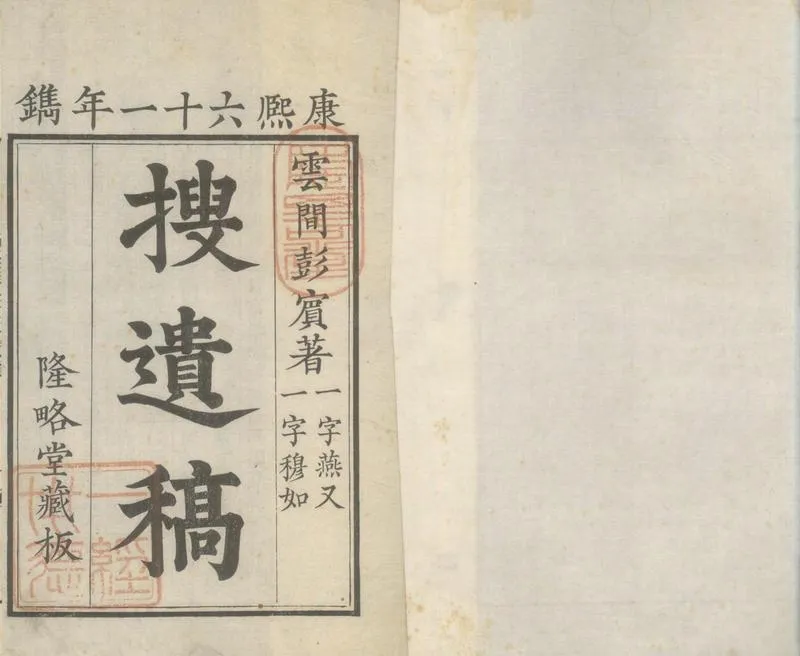 康熙六十一年鐫
雲間彭賓著
一字燕又
一字穆如
搜遺稿
隆略堂藏板